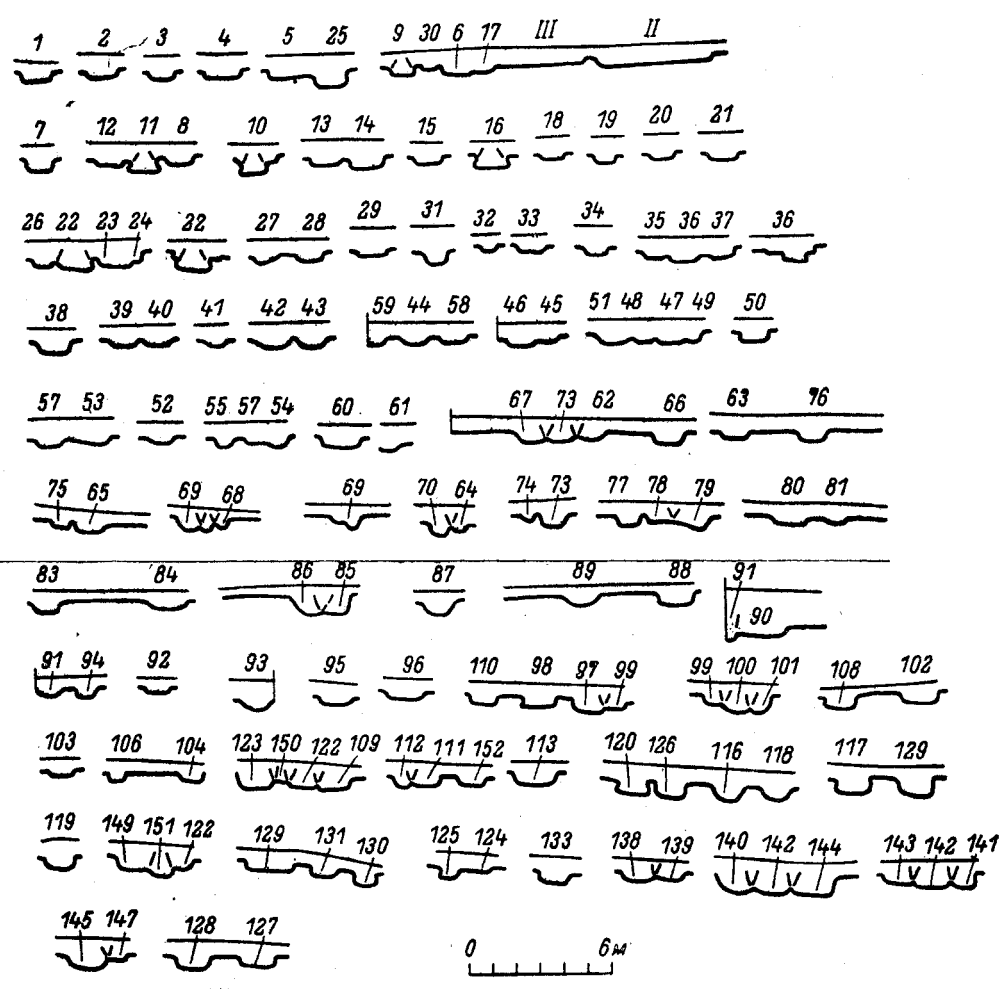 1 2 3 4 5 25 9 30 6 17 III II
7 12 11 8 10 13 14 15 16 18 19 20 21
26 22 23 24 22 27 28 29 31 32 33 34 35 36 37 36
38 39 40 41 42 43 59 44 58 46 45 51 48 47 49 50
57 53 52 55 57 54 60 61 67 73 62 66 63 76
75 65 69 68 69 70 64 74 73 77 78 79 80 81
83 84 86 85 87 89 88 91
90
91 94 92 93 95 96 110 98 97 99 99 100 101 108 102
103 106 104 123 150 122 109 112 111 152 113 120 126 116 118 117 129
119 149 151 122 129 131 130 125 124 133 138 139 140 142 144 143 142 141
145 147 128 127 0 6 м